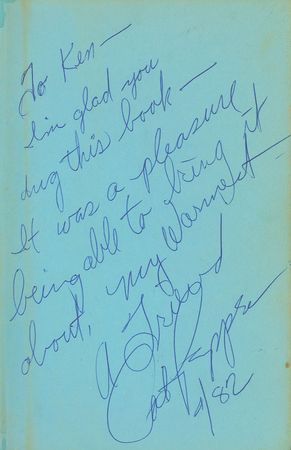 To Ken—
I'm glad you
dug this book—
It was a pleasure
being able to bring it
about, My Warmest—
A Friend
Art Peppe
4/82